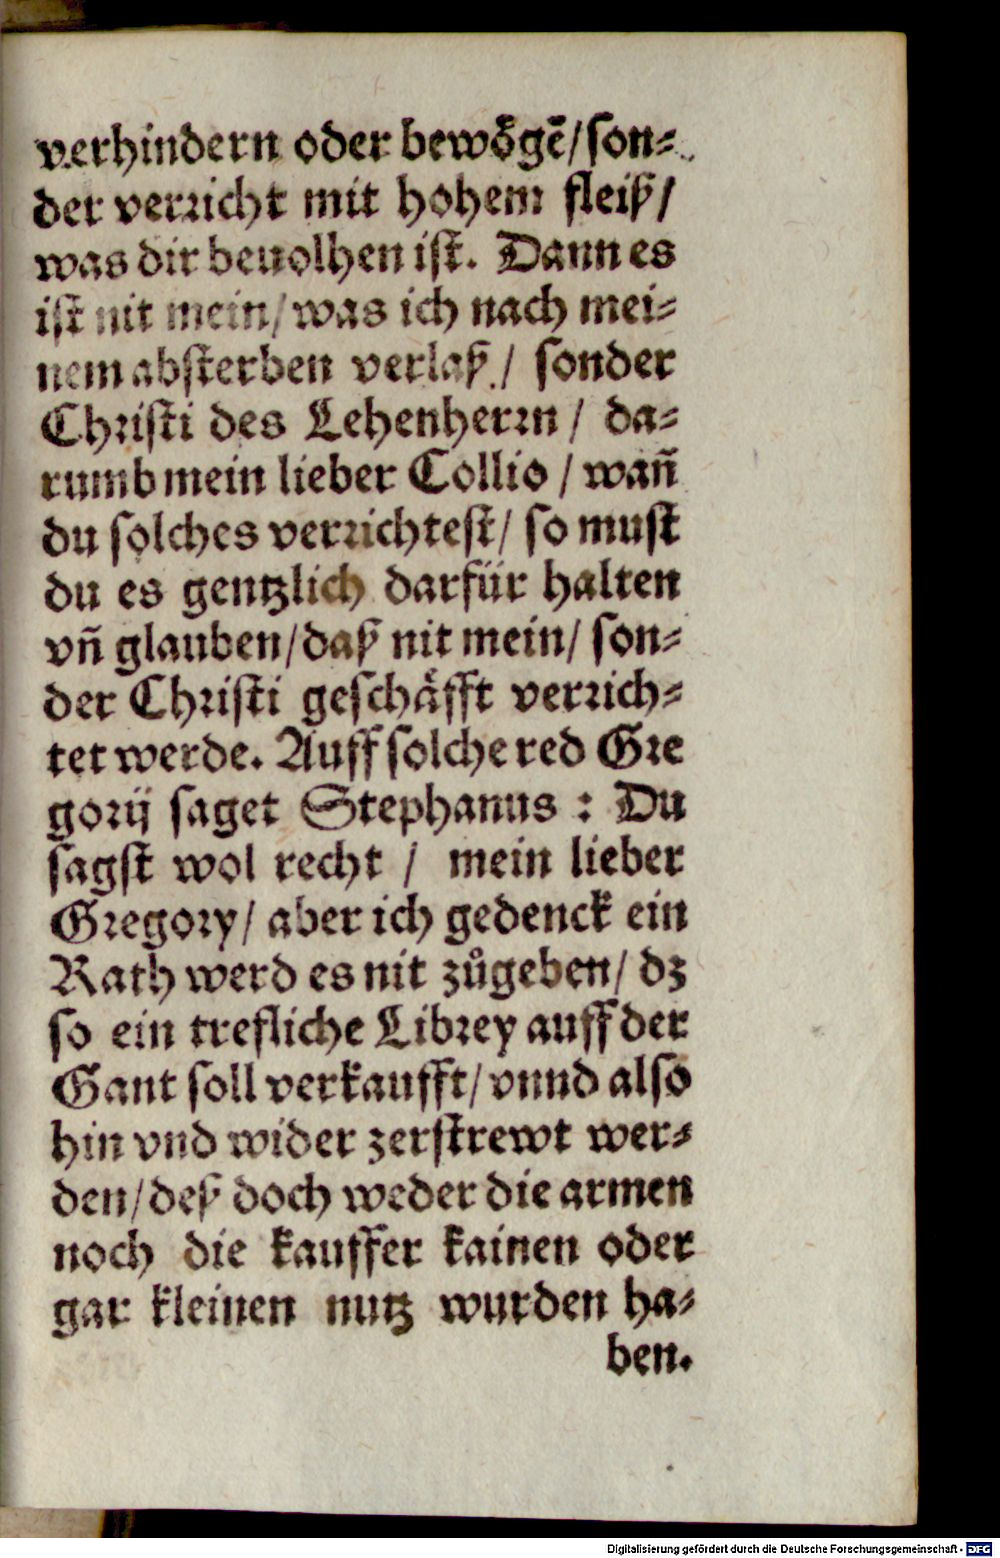 verhindern oder bewoͤgẽ/son⸗
der verꝛicht mit hohem fleiß/
was dir beuolhen ist. Dann es
ist nit mein/was ich nach mei⸗
nem absterben verlaß/ sonder
Chꝛisti des Lehenherꝛn / da⸗
rumb mein lieber Collio / wañ
du solches verꝛichtest/ so must
du es gentzlich darfür halten
vñ glauben/daß nit mein/ son⸗
der Chꝛisti geschaͤfft verꝛich⸗
tet werde. Auff solche red Gꝛe
goꝛij saget Stephanus : Du
sagst wol recht / mein lieber
Gꝛegoꝛy/ aber ich gedenck ein
Rath werd es nit zůgeben/ dz
so ein trefliche Libꝛey auff der
Gant soll verkaufft/ vnnd also
hin vnd wider zerstrewt wer⸗
den/deß doch weder die armen
noch die kauffer kainen oder
gar kleinen nutz wurden ha⸗
ben.
Digitalisierung gefördert durch die Deutsche Forschungsgemeinschaft - DFG